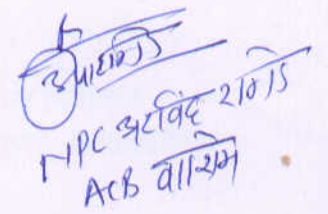 NPC अरविंद राठोड
ACB वाशिम